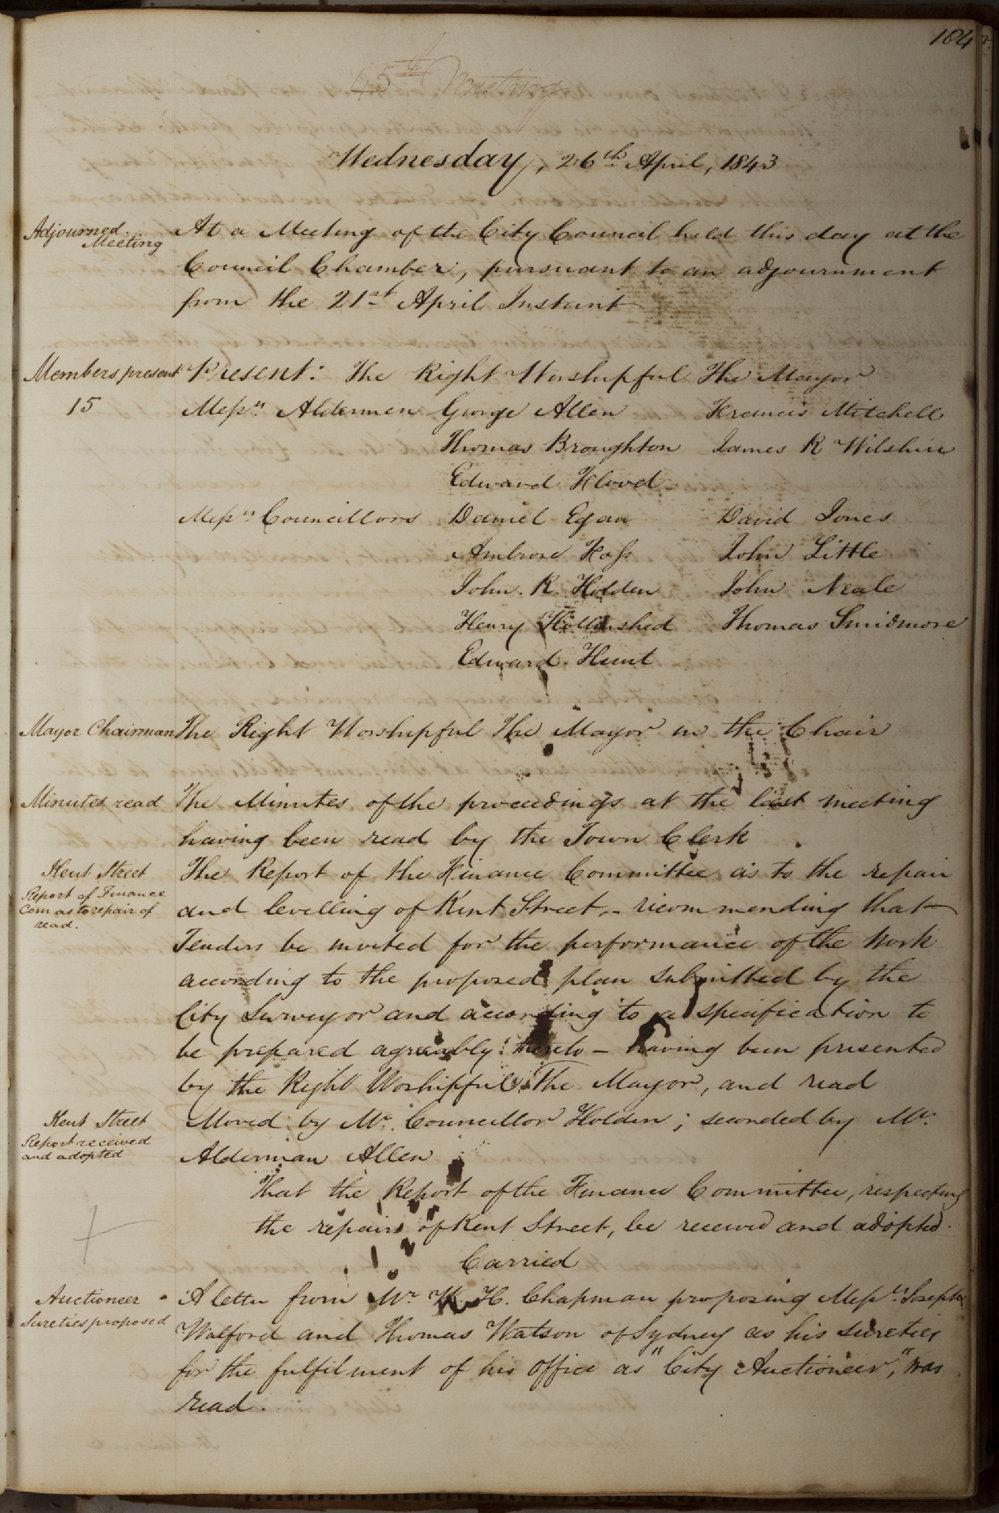 184
45th Meeting
Wednesday, 26th April, 1843
Adjourned
Meeting
At a Meeting of the City Council held this day at the
Council Chamber, pursuant to an adjournment
from the 21st April Instant
Members present
15
Present: The Right Worshipful The Mayor
Messrs Aldermen George Allen Francis Mitchell
Thomas Broughton James R Wilshire
Edward Flood
Messrs Councillors Daniel Egan David Jones
Ambrose Foss John Little
John R. Holden John Neale
Henry Hollinshed Thomas Smidmore
Edward Hunt
Mayor Chairman
The Right Worshipful The Mayor in the Chair
Minutes read
The Minutes of the proceedings at the last meeting
having been read by the Town Clerk
Kent Street
Report of Finance
Com as to repair of
read.
The Report of the Finance Committee as to the repair
and levelling of Kent Street, - recommending that
Tenders be invited for the performance of the Work
according to the proposed plan submitted by the
City Surveyor and according to a specification to
be prepared agreeably thereto - having been presented
by the Right Worshipful The Mayor, and read
Kent Street
Report received
and adopted
Moved by Mr. Councillor Holden; seconded by Mr.
Alderman Allen
That the Report of the Finance Committee, respecting
the repairs of Kent Street, be received and adopted.
Carried
Auctioneer
Sureties proposed
A letter from Mr W. H. Chapman proposing Messrs Joseph
Walford and Thomas Watson of Sydney as his sureties
for the fulfilment of his office as "City Auctioneer", was
read.